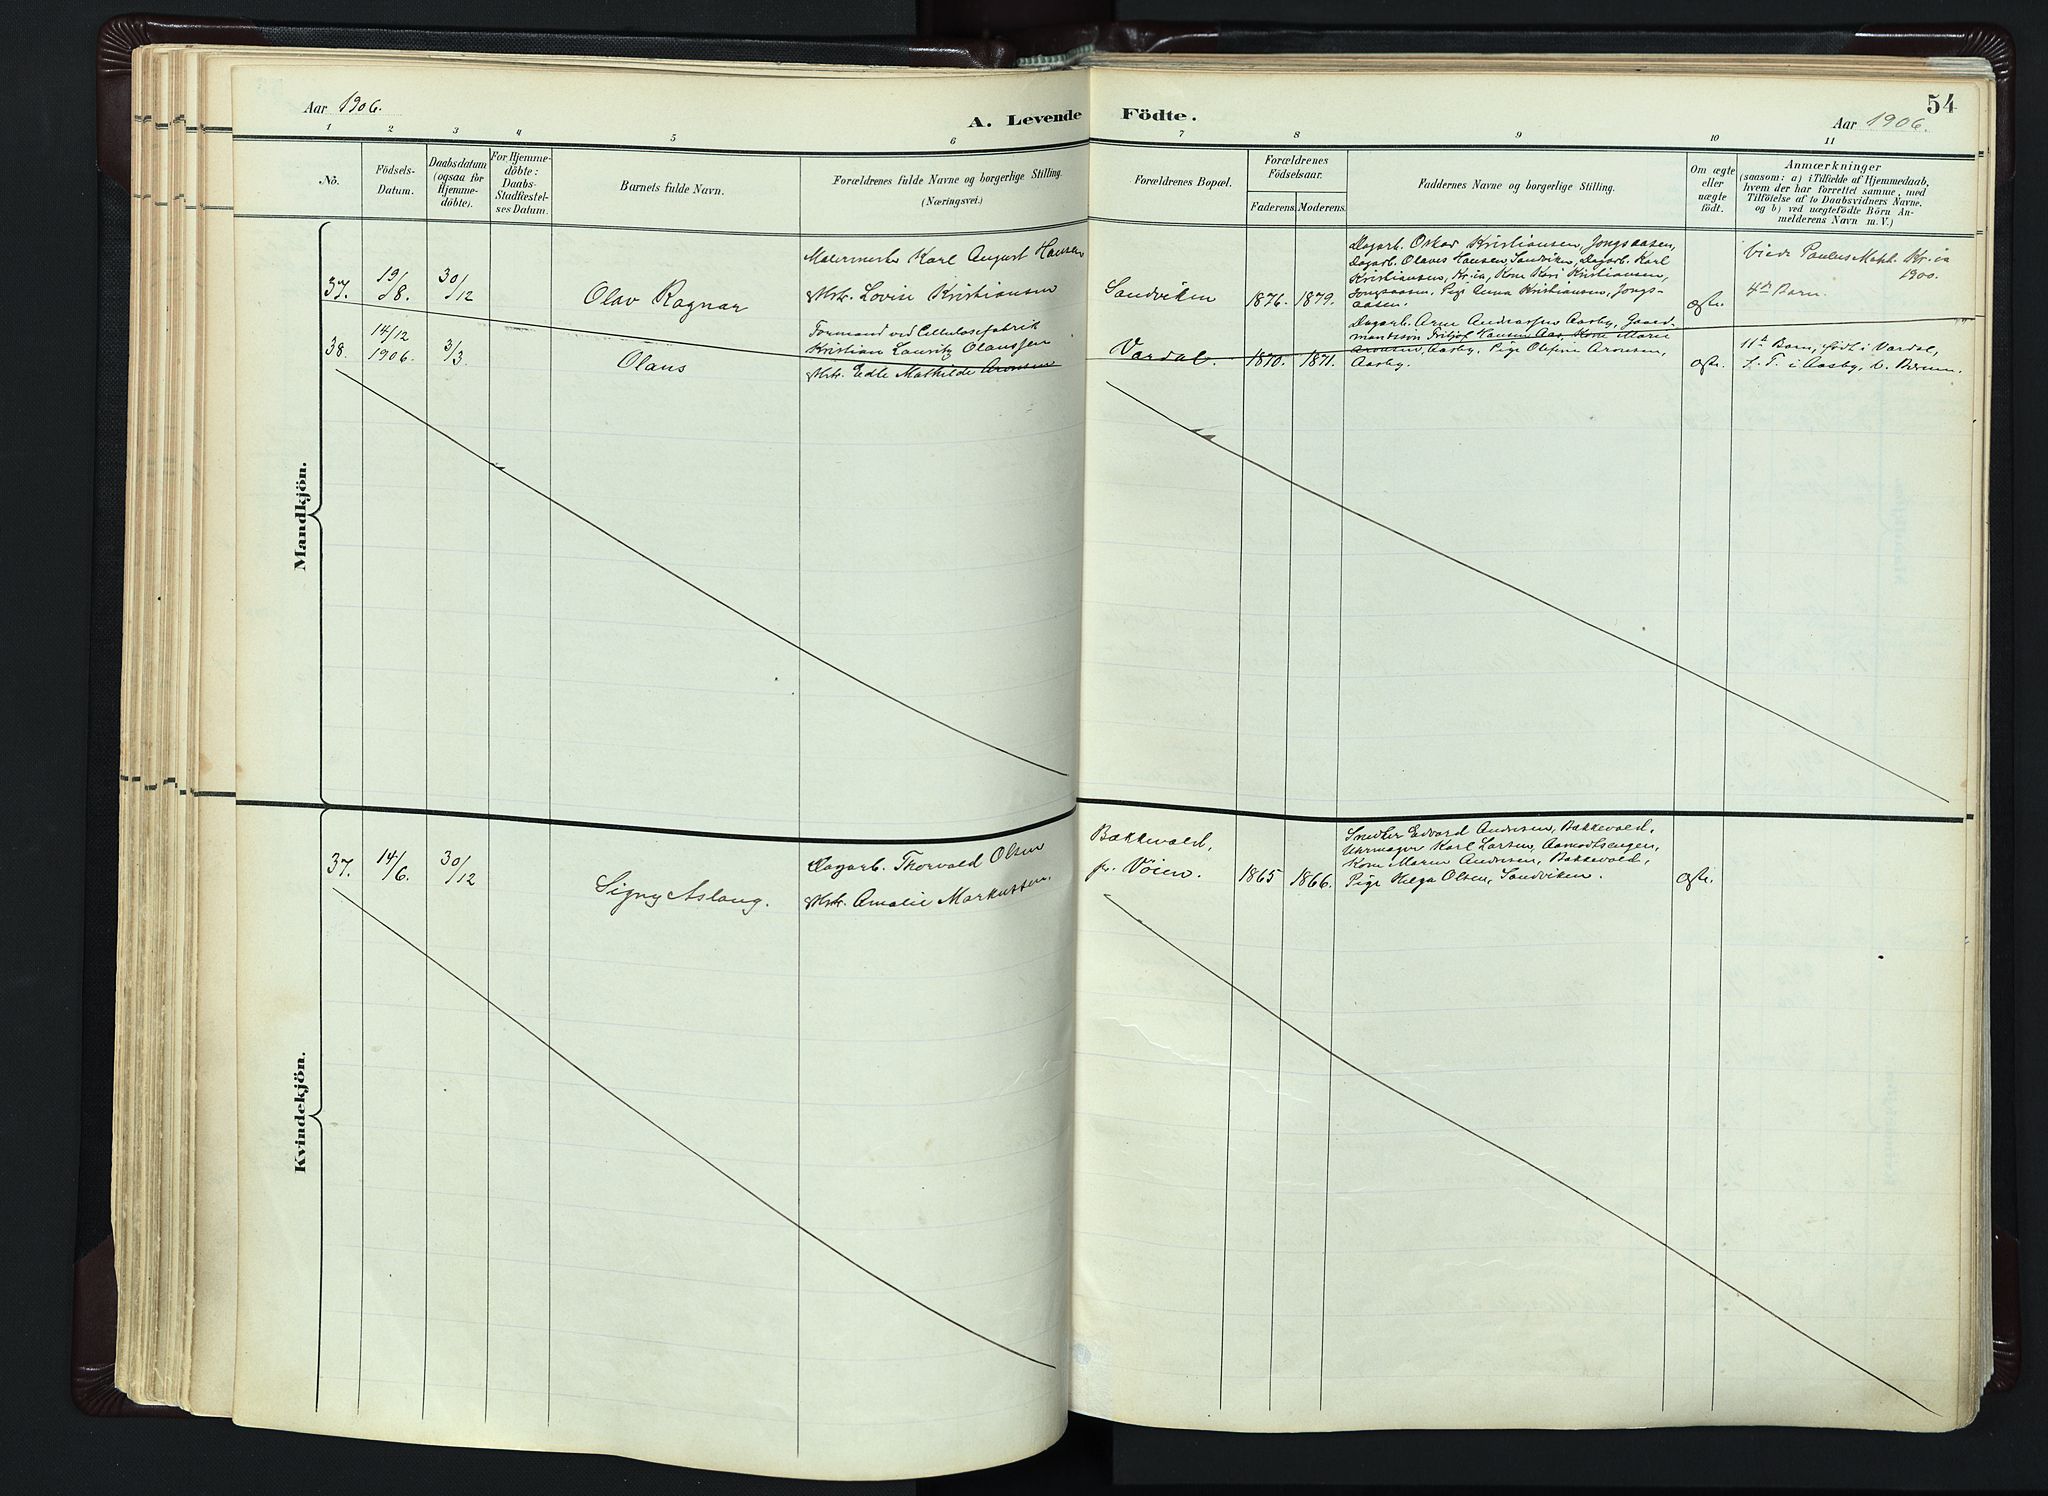 Aar 1906.
A. Levende Födte.
54
Aar 1906.
1 2 3 4 5 6 7 8 9 10 11
No.
Födsels-
Datum.
Daabsdatum
(ogsaa för
Hjemme-
döbte).
For Hjemme-
döbte:
Daabs-
Stadfæstel-
ses Datum.
Barnets fulde Navn.
Forældrenes fulde Navne og borgerlige Stilling.
(Næringsvei.)
Forældrenes Bopæl.
Forældrenes
Födselsaar.
Faderens. Moderens.
Faddernes Navne og borgerlige Stilling.
Om ægte
eller
uægte
födt.
Anmærkninger
(saasom: a) i Tilfælde af Hjemmedaab,
hvem der har forrettet samme, med
Tilföielse af to Daabsvidners Navne.
og b) ved uægtefödte Börn An-
melderens Navn m. V.)
Mandkjön.
37.
19/8.
30/12
Olav Ragnar
Malermester Karl August Hansen
Hstr. Lovise Kristiansen
Sandviken
1876. 1879.
Dagarb. Oskar Kristiansen, Jongsaasen,
Dagarb. Olaves Hansen, Sandviken, Dagarb. Karl
Kristiansen, Kr.ia, Kone Kari Kristiansen,
Jongsaasen, Pige Anna Kristiansen, Jongs-
aasen.
ægte.
Viede Paulus Mkht. Kr.ia
1900.
4de Barn.
38.
14/12
1906.
3/3.
Olaus
Formand ved Cellulosefabrik
Kristian Lauritz Olaussen
Hstr. Edle Mathilde Aronsen
Vardal.
1870. 1871.
Dagarb. Arne Andreassen Aasby, Gaard-
mandssøn Fritjof Hansen Aas, Kone Marie
Aronsen, Aasby, Pige Olefine Aronsen,
Aasby.
ægte.
11te Barn, født i Vardal,
f. T. i Aasby, V. Bærum.
Kvindekjön.
37.
14/6.
30/12
Signy Aslaug.
Dagarb. Thorvald Olsen
Hstr. Amalie Markussen.
Bakkevold,
pr. Vöien.
1865 1866.
Snedker Edvard Andersen, Bakkevold,
Uhrmager Karl Larsen, Aamodtsengen,
Kone Maren Andersen, Bakkevold,
Pige Helga Olsen, Sandviken.
ægte.